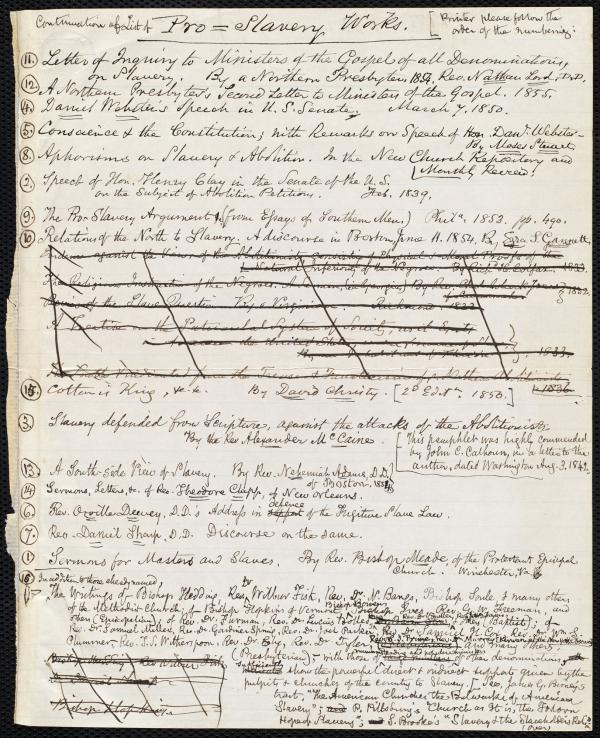 Continuation of List of Pro=Slavery Works. [Printer please follow the
order of the numbering:
11. Letter of Inquiry to Ministers of the Gospel of all Denominations,
on Slavery. By a Northern Presbyter. 1854, Rev. Nathan Lord, D.D.
12. A Northern Presbyter's Second Letter to Ministers of the Gospel. 1855.
4. Daniel Webster's Speech in U.S. Senate, March 7, 1850.
5. Conscience & the Constitution; with Remarks on Speech of Hon. Danl. Webster—
By Moses Stuart.
8. Aphorisms on Slavery & Abolition. In the New Church Repository and
Monthly Review.
2. Speech of Hon. Henry Clay in the Senate of the U.S.
on the Subject of Abolition Petitions. Feb. 1839.
9. The Pro-Slavery Argument, (from Essays of Southern Men.) Phila. 1853. pp. 490.
10. Relations of the North to Slavery. A discourse in Boston, June 11. 1854. By Ezra S. Gannett.
against the Views of the Abolitionists, consisting of Physical & Moral Proofs of the
Natural Inferiority of the Negroes. By Rich. H. Colfax. 1833.
The Religious Instruction of the Negroes. By Rev.
Review of the Slave Question. By a Virginian. Richmond. 1833
A Treatise on the Patriarchal System of Society, as it Exists
the United States
1833.
from the Treason & Fanaticism of the Northern Abolitionists
1836.
15. Cotton is King, &c. &c. By David Christy. [2d Edtn. 1850.]
3. Slavery defended from Scripture, against the attacks of the Abolitionists.
By the Rev Alexander McCaine. [This pamphlet was highly commended
by John C. Calhoun, in a letter to the
author, dated Washington Aug. 3. 1842.
13. A South-Side View of Slavery. By Rev. Nehemiah Adams, D.D.,
of Boston.
14. Sermons, Letters, &c. of Rev. Theodore Clapp, of New Orleans.
6. Rev. Orville Dewey, D.D.'s Address in defence of the Fugitive Slave Law.
7. Rev. Daniel Sharp, D.D. Discourse on the same.
1. Sermons for Masters and Slaves. By Rev. Bishop Meade, of the Protestant Episcopal
Church. Winchester, Va.
In addition to those already named,
The Writings of Bishop Hedding, Rev. Dr. Wilbur Fisk, Rev. Dr. N. Bangs, Bishop Soule & many others
of the Methodist Church; of Bishop Hopkins of Vermont, Bishop Bowen, Bishop Ives, Rev. G. W. Freeman, and
others (Episcopalian); of Rev. Dr. Furman, Rev. Lucius Bolles, & others (Baptist); of
Rev. Dr. Samuel Miller, Rev. Dr. Gardiner Spring, Rev. Dr. Joel Parker, Rev. Dr. Samuel H. Cox, Rev. Dr. Wm. S.
Plummer, Rev. T. S. Witherspoon, Rev. Dr. Ely, Rev. Dr. Tyler and many others,
(Presbyterian),—with those of of other denominations,
sufficiently show the powerful direct & indirect support given by the
pulpits & churches of the country to Slavery. See, James G. Birney's
tract, "The American Churches the Bulwarks of American
Slavery"; P. Pillsbury's "Church as It is; the Forlorn
Hope of Slavery"; S. Brooke's "Slavery & the Slaveholder's Religion"
(over
Rev. Wilbur Fisk
Bishop Hopkins